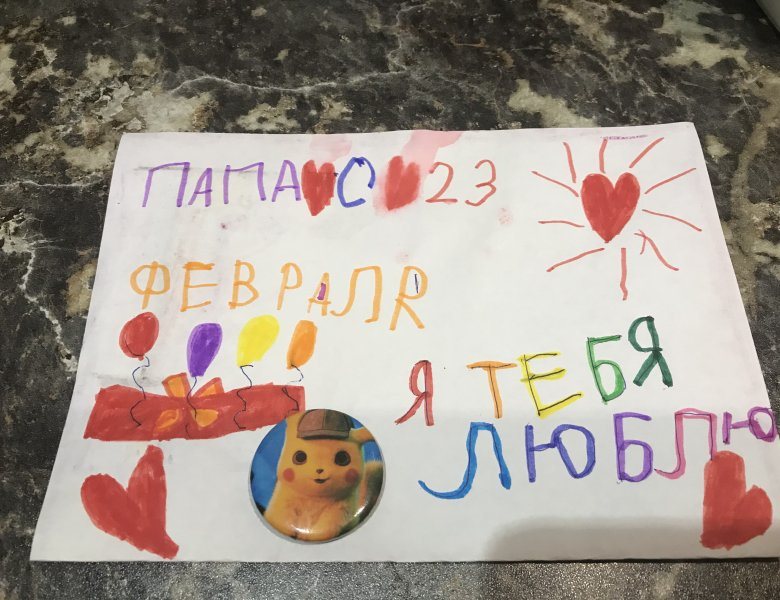 ПАПА С 23
ФЕВРАЛЯ
Я ТЕБЯ
ЛЮБЛЮ